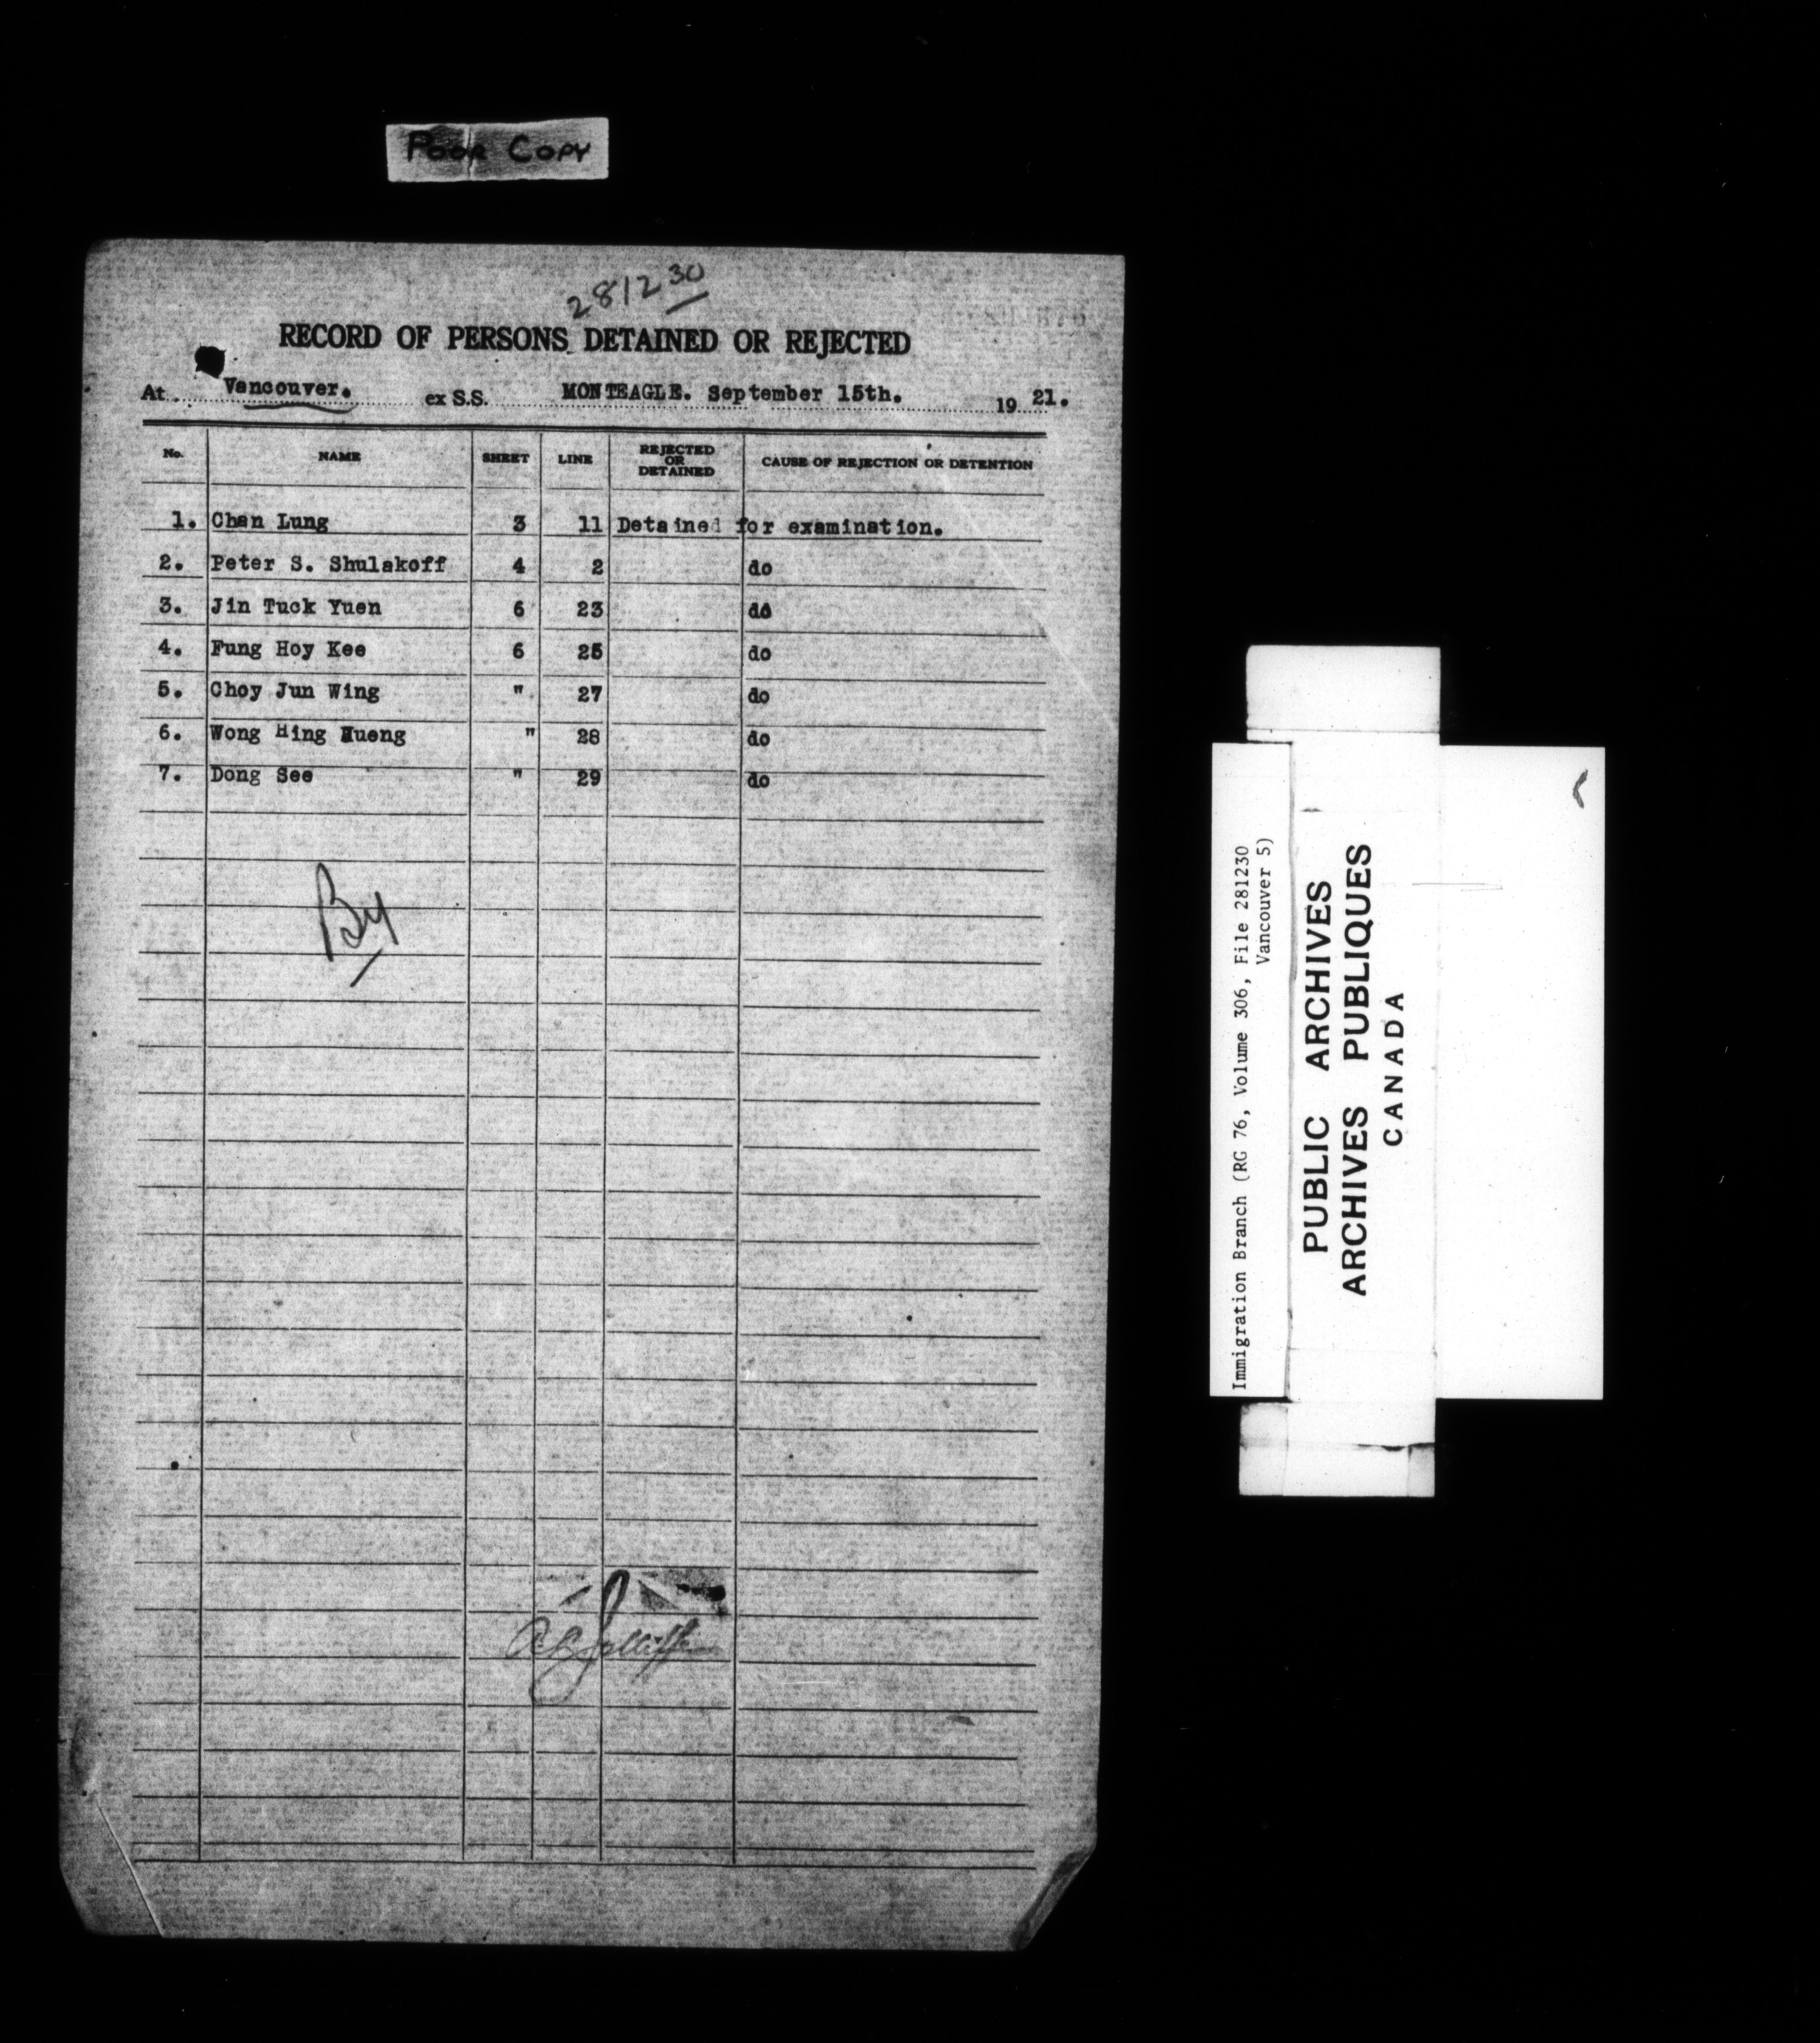 POOR COPY
281230
RECORD OF PERSONS DETAINED OR REJECTED
At Vancouver. ex S.S. MONTEAGLE. September 15th. 1921.
No. NAME SHEET LINE REJECTED OR DETAINED CAUSE OF REJECTION OR DETENTION
1. Chan Lung 3 11 Detained for examination.
2. Peter S. Shulakoff 4 2 do
3. Jin Tuck Yuen 6 23 do
4. Fung Hoy Kee 6 25 do
5. Choy Jun Wing " 27 do
6. Wong Hing Hueng " 28 do
7. Dong See " 29 do
By
Immigration Branch (RG 76, Volume 306, File 281230
Vancouver 5)
PUBLIC ARCHIVES
ARCHIVES PUBLIQUES
CANADA